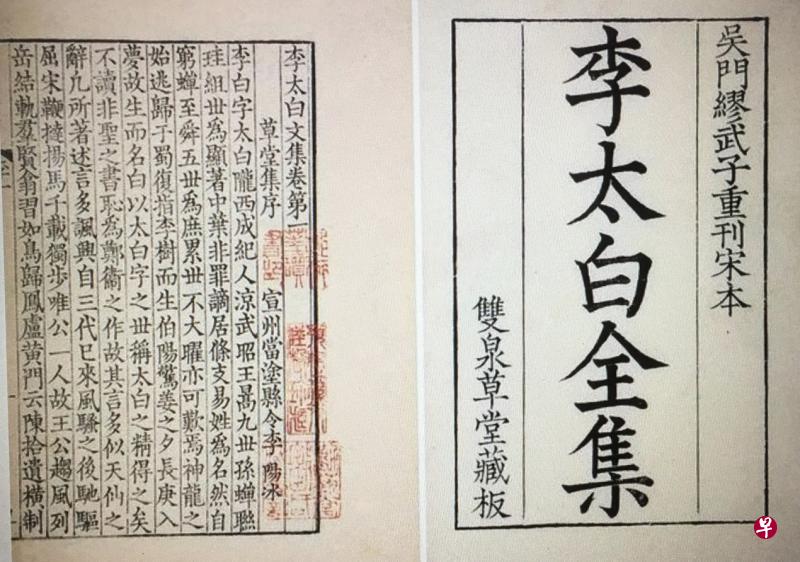 吳門繆武子重刊宋本
李太白全集
雙泉草堂藏板
李太白文集卷第一
草堂集序 宣州當塗縣令李陽冰
李白字太白隴西成紀人涼武昭王暠九世孫蟬聯
珪組世爲顯著中葉非罪謫居條支易姓爲名然自
窮蟬至舜五世爲庶累世不大曜亦可歎焉神龍之
始逃歸于蜀復指李樹而生伯陽驚姜之夕長庚入
夢故生而名白以太白字之世稱太白之精得之矣
不讀非聖之書恥爲鄭衞之作故其言多似天仙之
辭凡所著述言多諷興自三代已來風騷之後馳驅
屈宋鞭撻揚馬千載獨步唯公一人故王公趨風列
岳結軌羣賢翕習如鳥歸鳳盧黃門云陳拾遺橫制
早